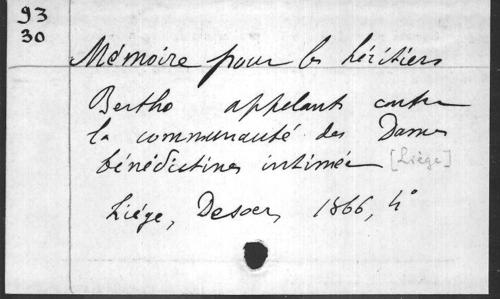 93
30
Mémoire pour les héritiers
Bertho appelants contre
la communauté des Dames
bénédictines intimée [Liège]
Liége, Desoer, 1866, 4°